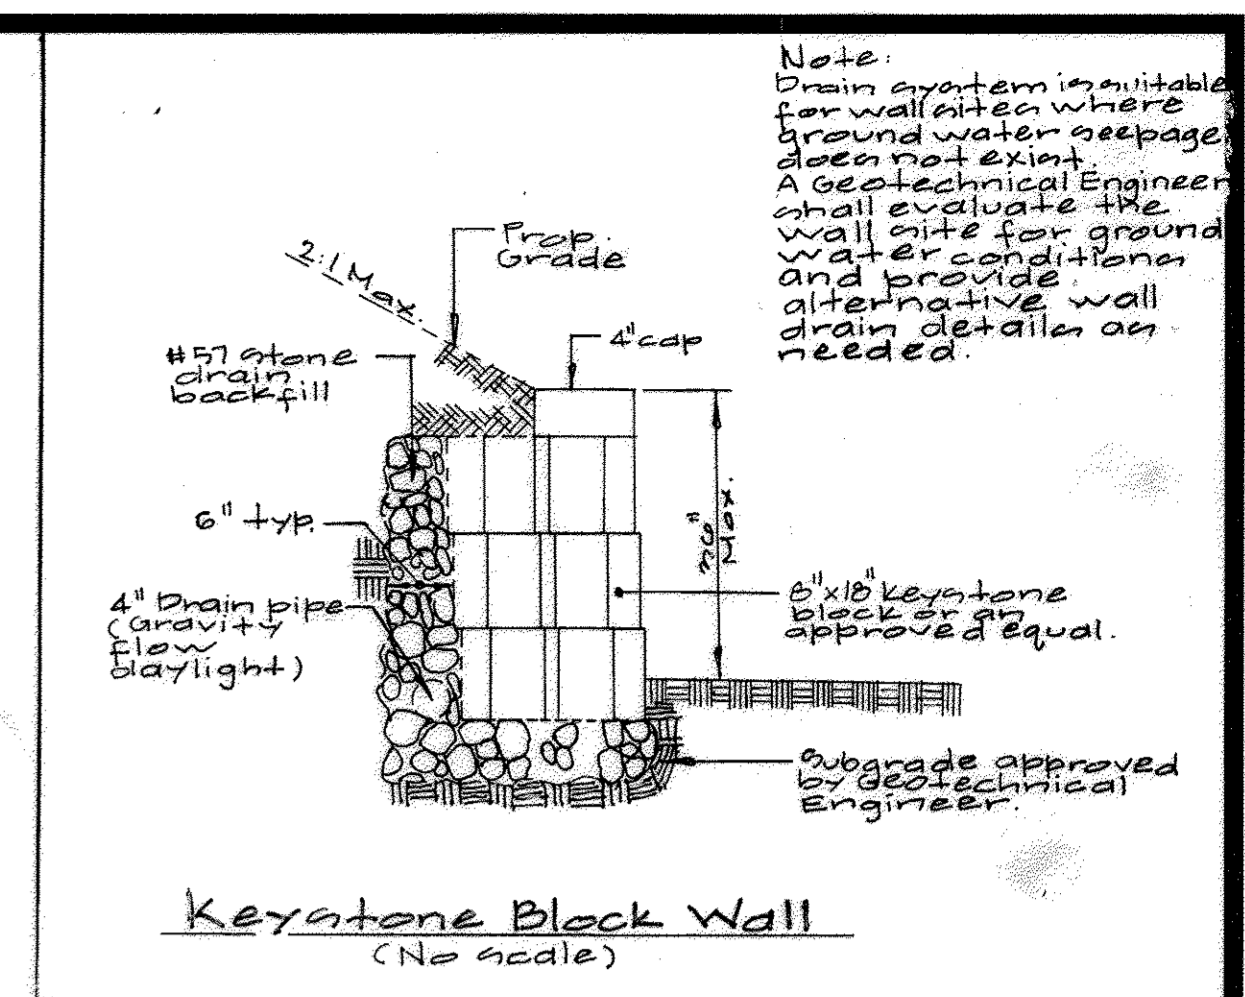 Note:
Drain system is suitable
for wall sites where
ground water seepage
does not exist.
A Geotechnical Engineer
shall evaluate the
wall site for ground
water conditions
and provide
alternative wall
drain details as
needed.
2:1 Max.
Prop.
Grade
4" cap
#57 stone
drain
backfill
6" typ.
4" Drain pipe
(Gravity
flow
daylight)
36"
Max.
8"x18" Keystone
block or an
approved equal.
Subgrade approved
by Geotechnical
Engineer.
Keystone Block Wall
(No scale)